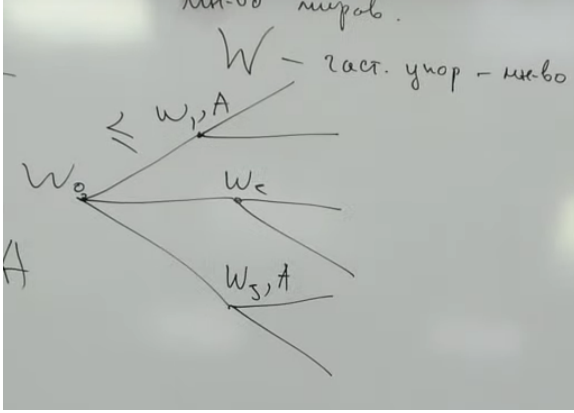 мн-во миров.
W – част. упор - мн-во
≤ W₁, A
W₀ W₂
A W₃, A